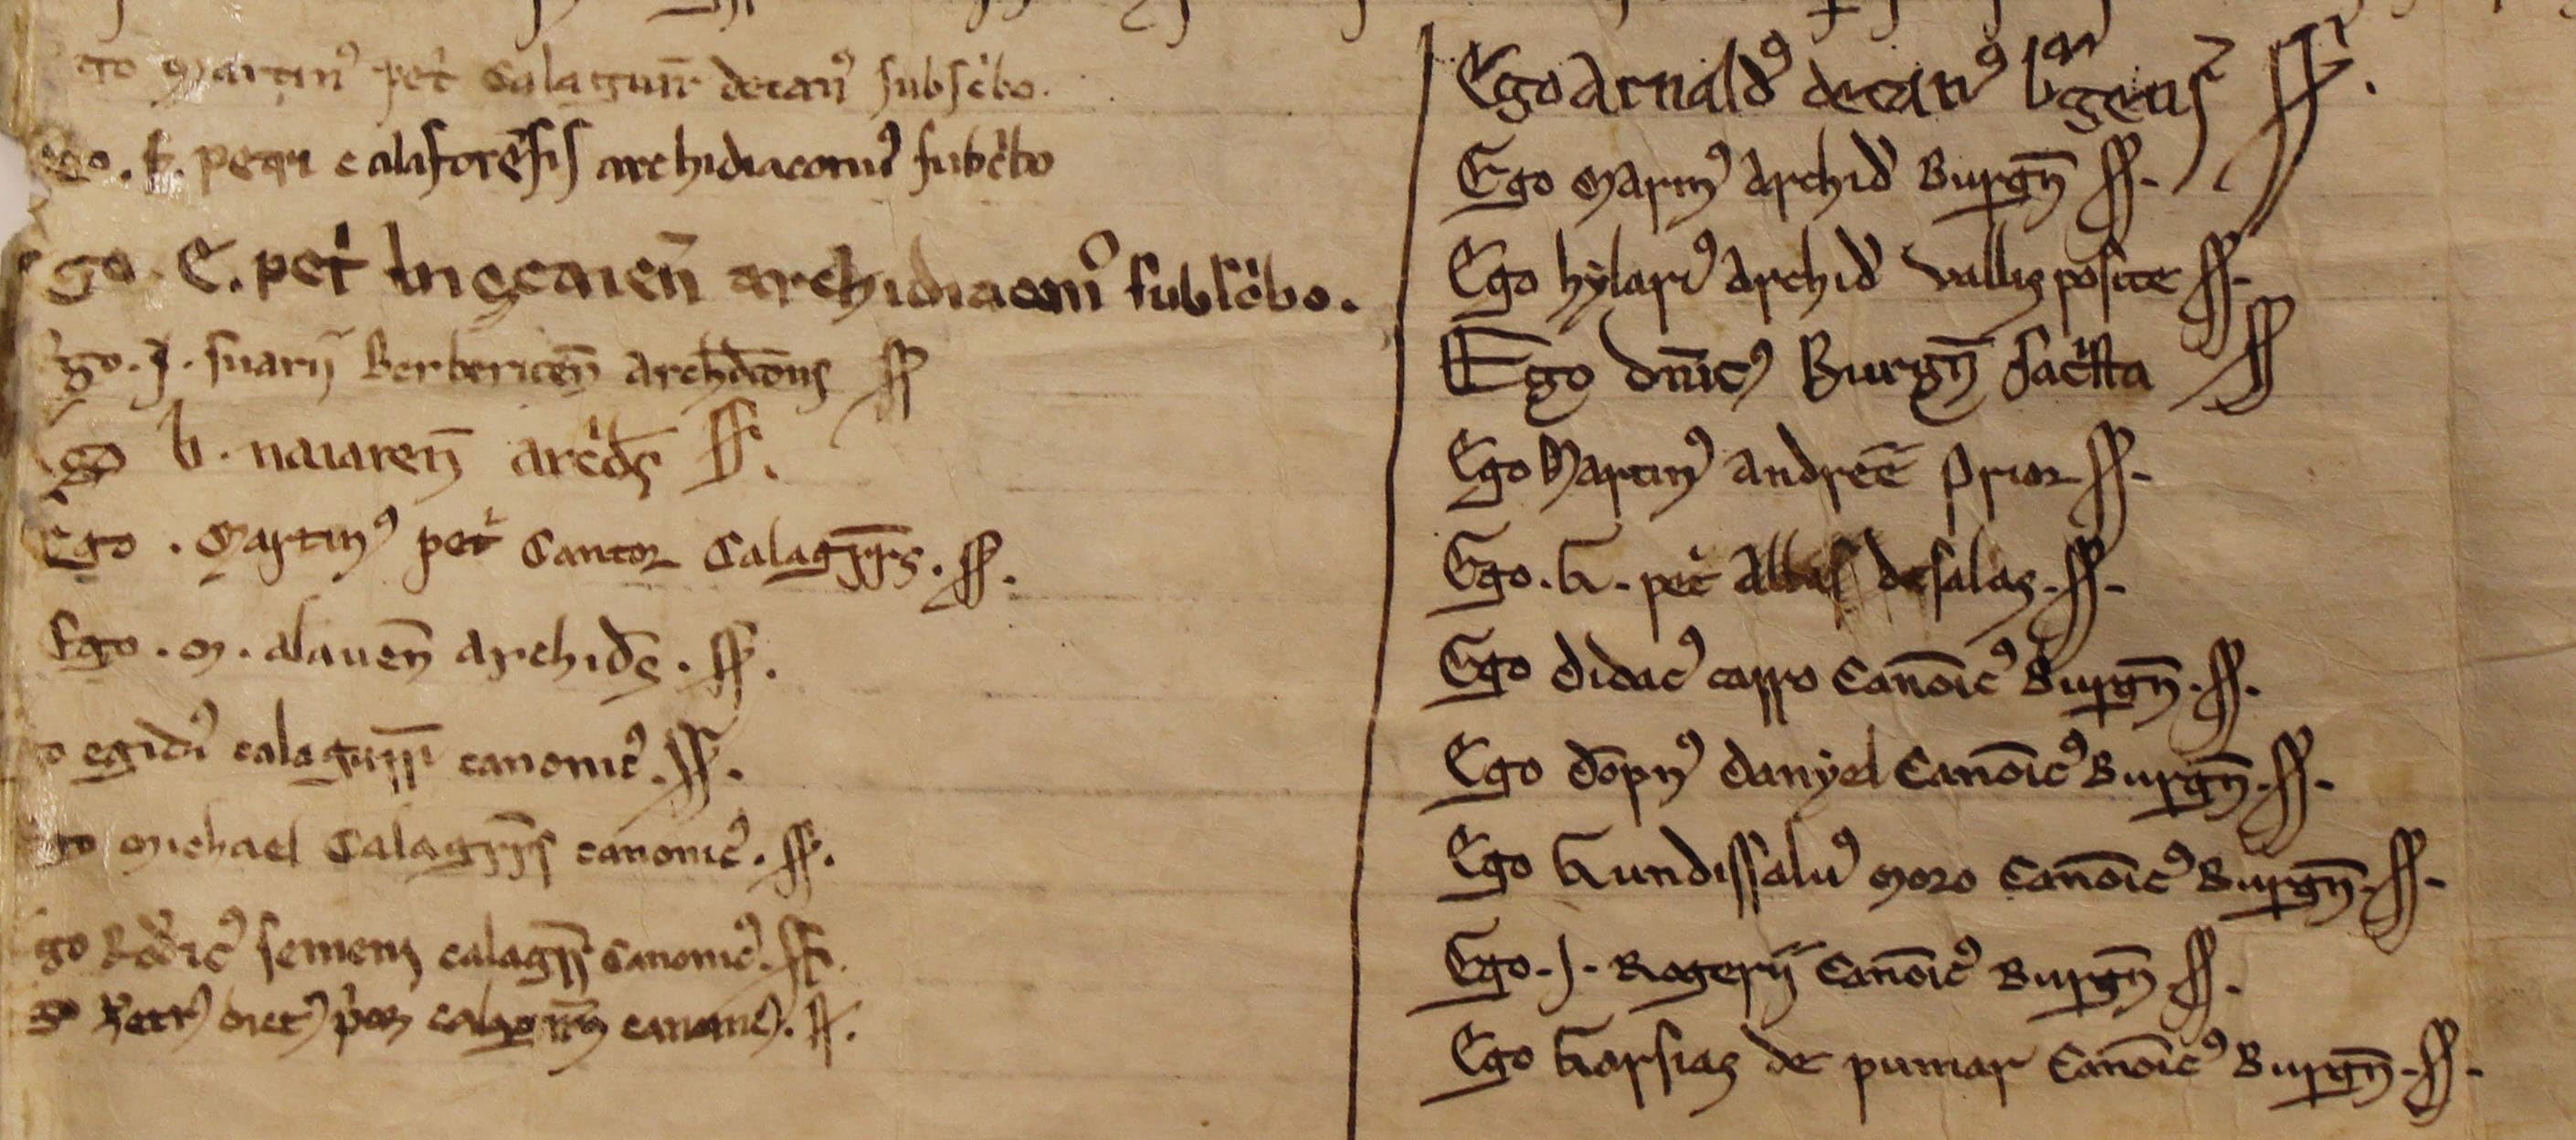 go Martin⁹ pet̉ Calagurr̄ decan⁹ subsc̉bo.
Ego. f. petri calaforēsis archidiaconus subc̉bo
Ego. E. pet̉ bizcaien̄ archidiacon⁹ subsc̉bo.
Ego. J. suarij Berbericen̄ archidīcons ss
Ego b. naiaren̄ arc̉ds ss.
Ego. Martin⁹ pet̉ Cantor Calagurrs. ss.
Ego. M. alauen̄ archids. ss.
go egidi⁹ calagurr̄ canonic⁹. ss.
Ego Michael Calagrrs canonic⁹. ss.
Ego Rod̉ic⁹ semenz calagrr̄ canonic⁹. ss.
go Petr⁹ dict⁹ p̉or calagurr̄ canonic⁹. ss.
Ego Arnald⁹ decan⁹ b̉gens ss.
Ego Martin⁹ Archid̉ Burgn̄ ss.
Ego hylari⁹ Archid̉ vallis posite ss.
Ego dn̄ic⁹ Burgn̄ sac̉sta ss
Ego Martin⁹ andree Prior ss.
Ego. G. pet̉ Abbas de salas. ss.
Ego didac⁹ carro Canōic⁹ Burgn̄. ss.
Ego dōpn⁹ danyel Canōic⁹ Burgn̄. ss.
Ego Gundissalu⁹ moro Canōic⁹ Burgn̄. ss.
Ego. J. Rogerij Canōic⁹ Burgn̄. ss.
Ego Garsias de pumar Canōic⁹ Burgn̄. ss.